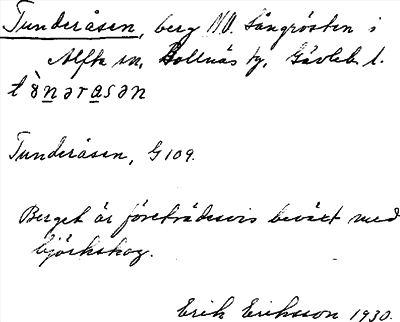 Tunderåsen, berg NV. Långrösten i
Alfta sn, Bollnäs tg, Gävleb. l.
t ò̱nərasən
Tunderåsen, G 109.
Berget är företrädesvis beväxt med
björkskog.
Erik Eriksson 1930.